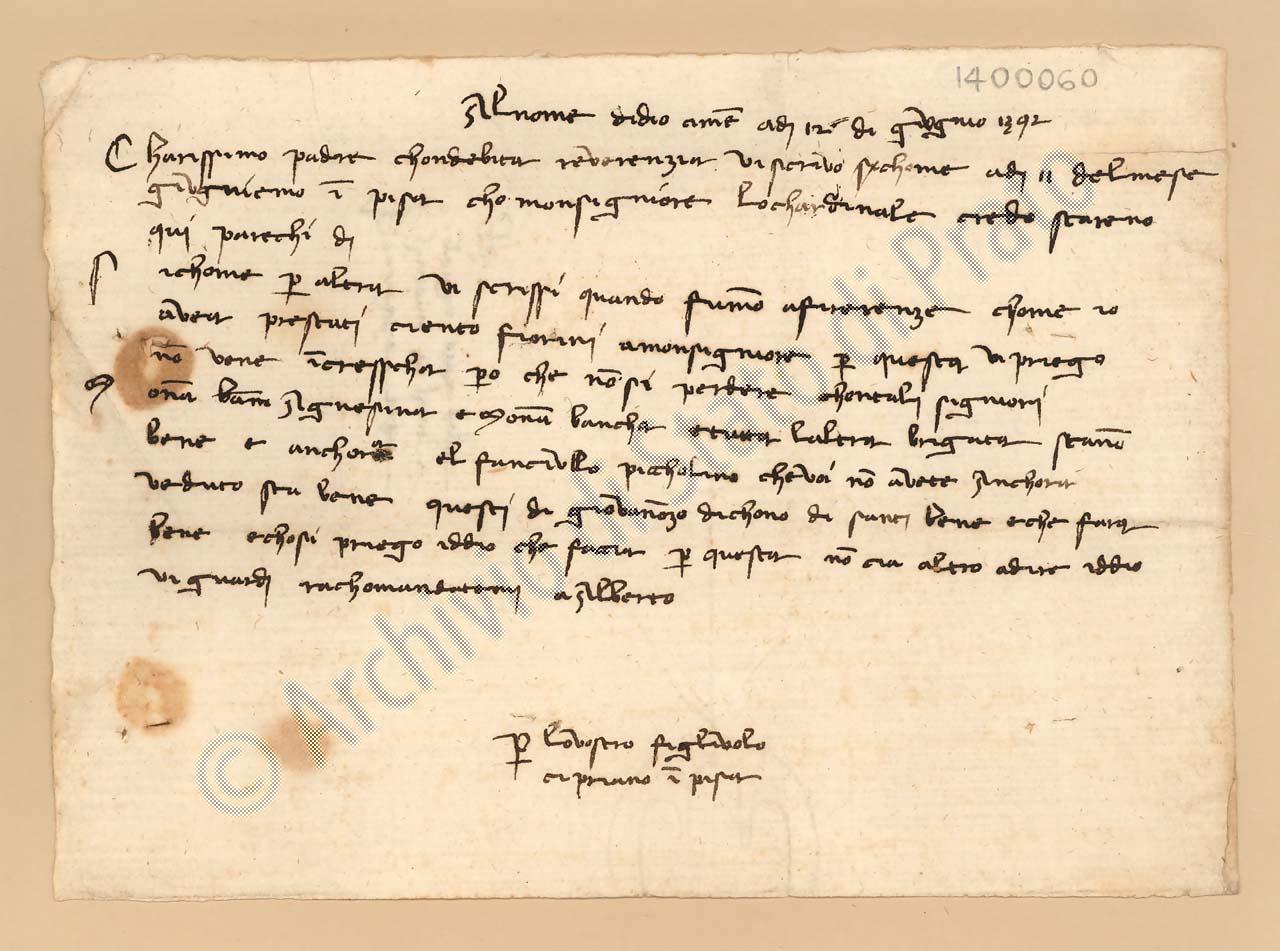 1400060
Al nome didio amē adj 12 di giugnio 1392
Charissimo padre chondebita reverenzia vi scrivo sichome adj 11 delmese
giugniemo ī pisa cho monsigniore lochardinale credo stareno
qui parechi dj
Sichome p altra vi scrissi quando fumo afirenze chome io
avea prestati ciento fiorini amonsigniore p questa vi priego
nō vene īcresscha po che nōsi perdere chontali signiori
Monā Agnesina e Monā bancha e tutta laltra brigata stano
bene e anchora el fanciullo picholino chevoi nō avete Anchora
veduto sta bene questi di giovanozo dichono di fatti bene e che fara
bene e chosi priego iddio che facia p questa nō cia altro adire iddio
vi guardj rachomandatemj a Alberto
p lovostro figliuolo
cipriano ī pisa
© Archivio di Stato di Prato